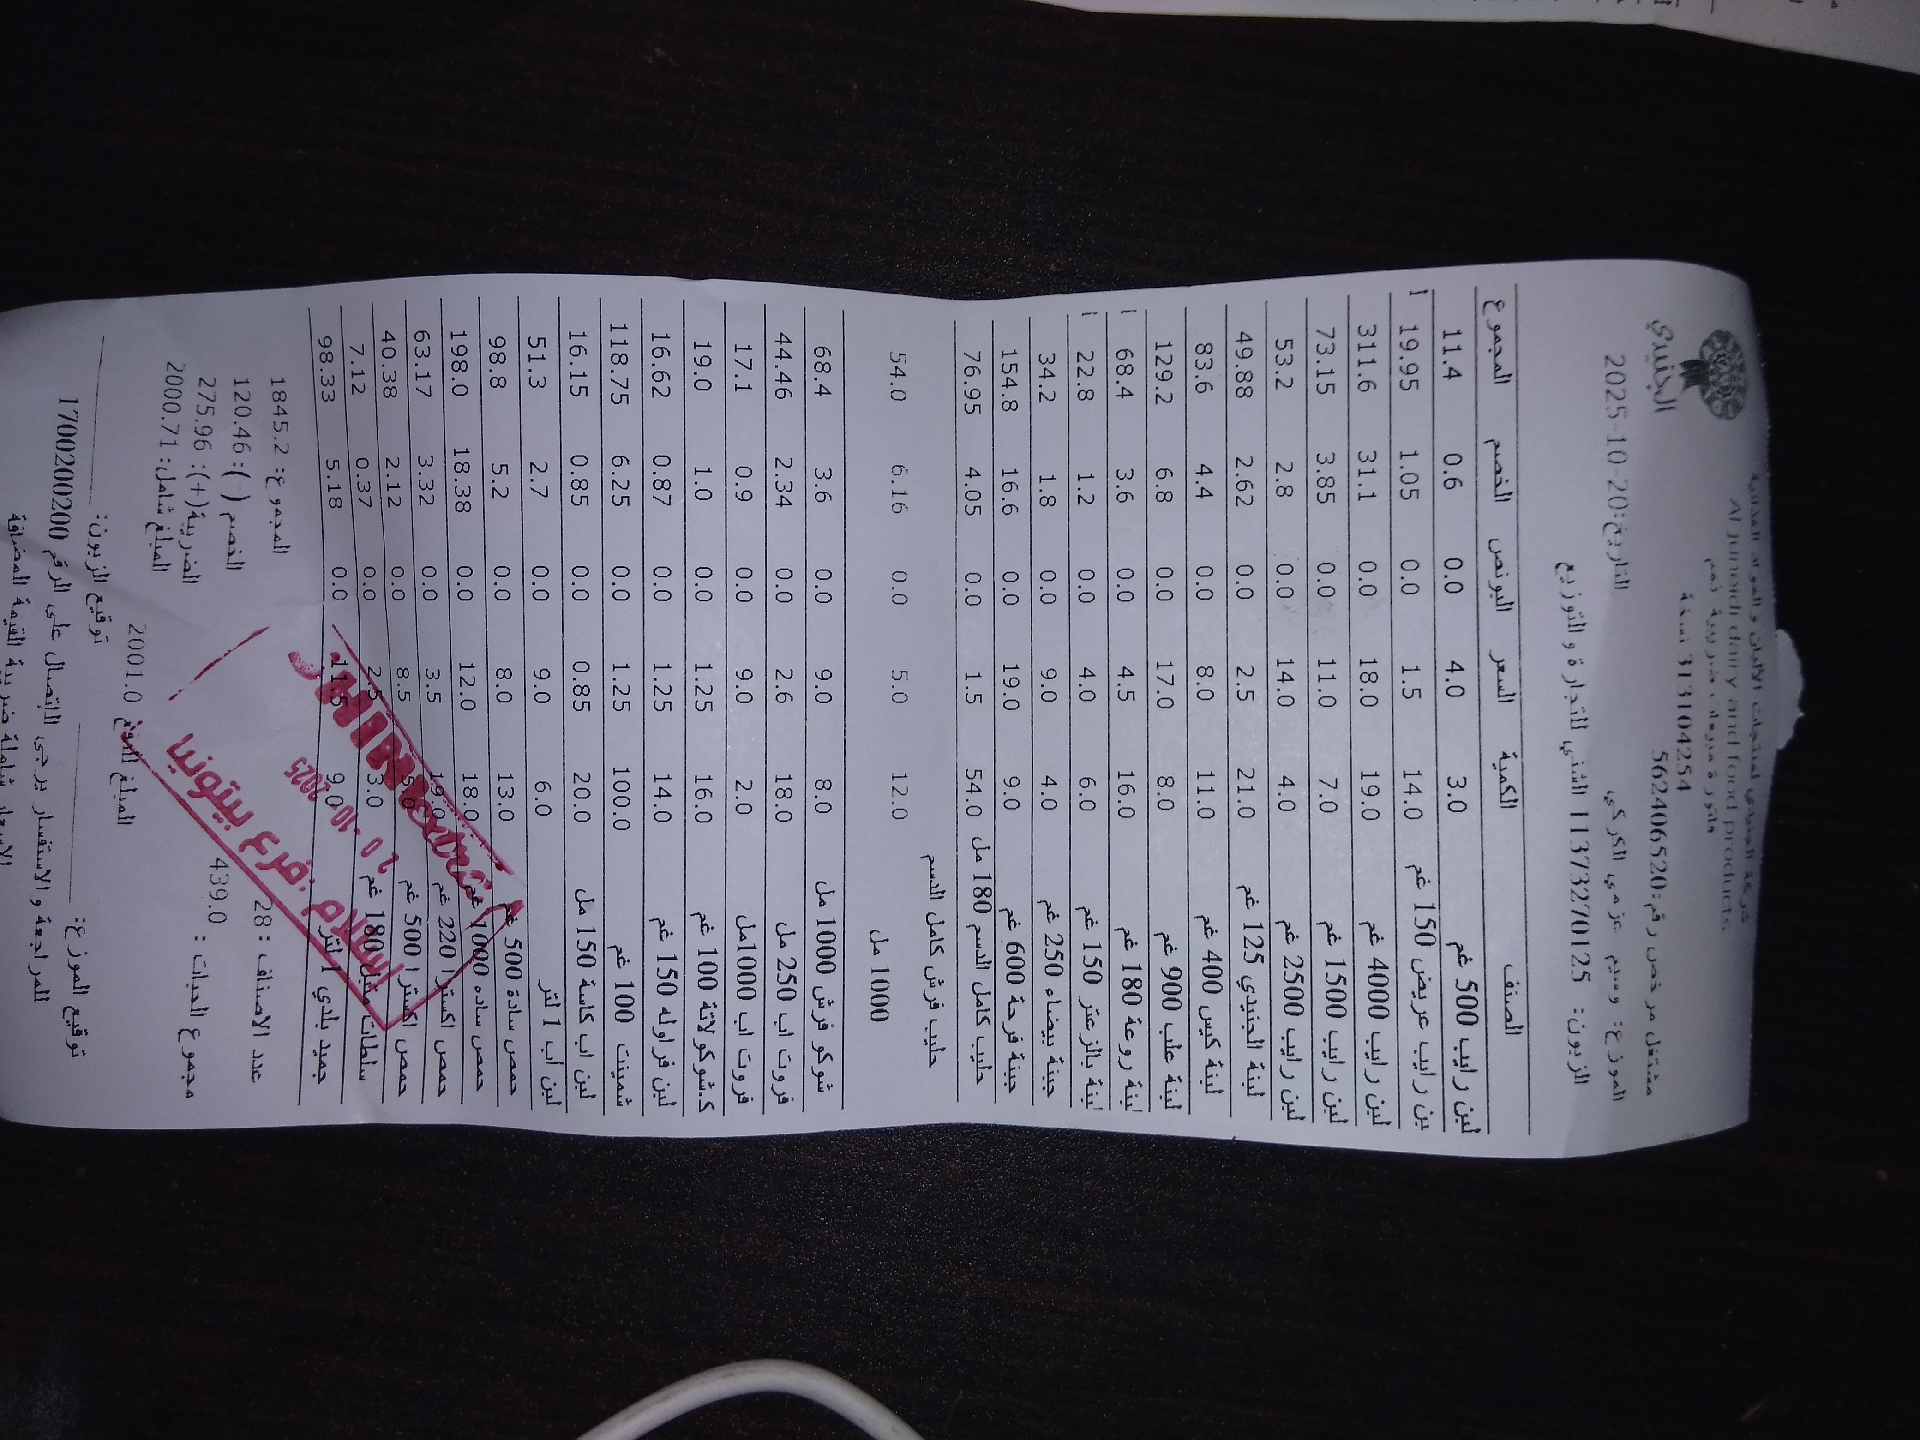 الجنيدي
شركة الجنيدي لمنتجات الألبان والمواد الغذائية
Al Juneidi dairy and food products
فاتورة مبيعات ضريبية رقم
313104254 نسخة
مشتغل مرخص رقم: 562406520
الموزع: وسيم عزمي الكركي
التاريخ: 2025-10-20
الزبون: 11373270125 الشني للتجارة والتوزيع
الصنف الكمية السعر البونص الخصم المجموع
لبن رايب 500 غم 3.0 4.0 0.0 0.6 11.4
بن رايب عريض 150 غم 14.0 1.5 0.0 1.05 19.95
لبن رايب 4000 غم 19.0 18.0 0.0 31.1 311.6
لبن رايب 1500 غم 7.0 11.0 0.0 3.85 73.15
لبن رايب 2500 غم 4.0 14.0 0.0 2.8 53.2
لبنة الجنيدي 125 غم 21.0 2.5 0.0 2.62 49.88
لبنة كيس 400 غم 11.0 8.0 0.0 4.4 83.6
لبنة علب 900 غم 8.0 17.0 0.0 6.8 129.2
لبنة روعة 180 غم 16.0 4.5 0.0 3.6 68.4
لبنة بالزعتر 150 غم 6.0 4.0 0.0 1.2 22.8
جبنة بيضاء 250 غم 4.0 9.0 0.0 1.8 34.2
جبنة فرحة 600 غم 9.0 19.0 0.0 16.6 154.8
حليب كامل الدسم 180 مل 54.0 1.5 0.0 4.05 76.95
حليب فرش كامل الدسم
1000 مل 12.0 5.0 0.0 6.16 54.0
شوكو فرش 1000 مل 8.0 9.0 0.0 3.6 68.4
فروت اب 250 مل 18.0 2.6 0.0 2.34 44.46
فروت اب 1000مل 2.0 9.0 0.0 0.9 17.1
ك.شوكولاتة 100 غم 16.0 1.25 0.0 1.0 19.0
لبن فراوله 150 غم 14.0 1.25 0.0 0.87 16.62
شمينت 100 غم 100.0 1.25 0.0 6.25 118.75
لبن اب كاسة 150 مل 20.0 0.85 0.0 0.85 16.15
لبن اب 1 لتر 6.0 9.0 0.0 2.7 51.3
حمص سادة 500 غم 13.0 8.0 0.0 5.2 98.8
حمص ساده 1000 غم 18.0 12.0 0.0 18.38 198.0
حمص اكسترا 220 غم 19.0 3.5 0.0 3.32 63.17
حمص اكسترا 500 غم 5.0 8.5 0.0 2.12 40.38
سلطات متبل 180 غم 3.0 2.5 0.0 0.37 7.12
جميد بلدي 1 لتر 9.0 11.5 0.0 5.18 98.33
20 -10- 2025
استلام. فرع بيتونيا
عدد الاصناف: 28 المجموع: 1845.2
مجموع الحبات: 439.0 الخصم ( ): 120.46
الضريبة(+): 275.96
المبلغ شامل: 2000.71
المبلغ المدور 2001.0
توقيع الموزع: توقيع الزبون:
للمراجعة والاستفسار يرجى الاتصال على الرقم 1700200200
الاسعار شاملة ضريبة القيمة المضافة